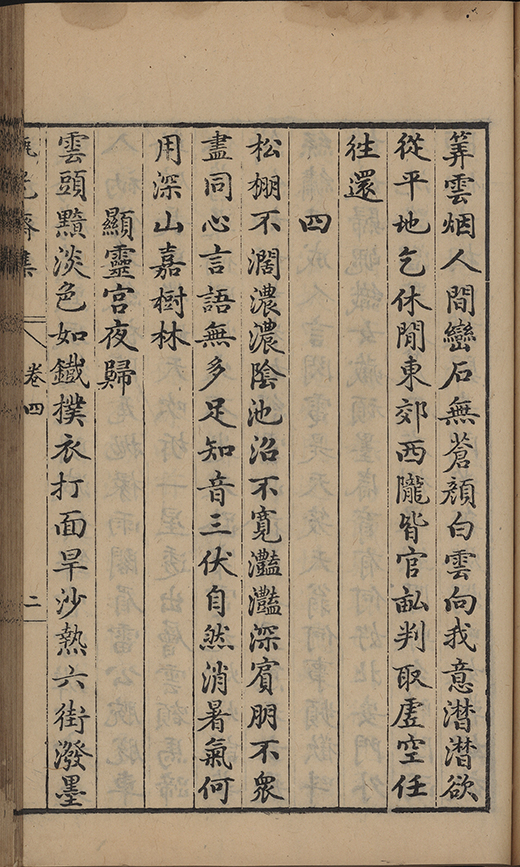 筭雲烟人間巒石無蒼顔白雲向我意潛潛欲
從平地乞休閒東郊西隴皆官畝判取虛空任
徃還
四
松棚不濶濃濃陰池沼不寛灩灩深賔朋不衆
盡同心言語無多足知音三伏自然消暑氣何
用深山嘉樹林
顯靈宫夜歸
雲頭黲淡色如鐵撲衣打面旱沙熱六街潑墨
卷四
二